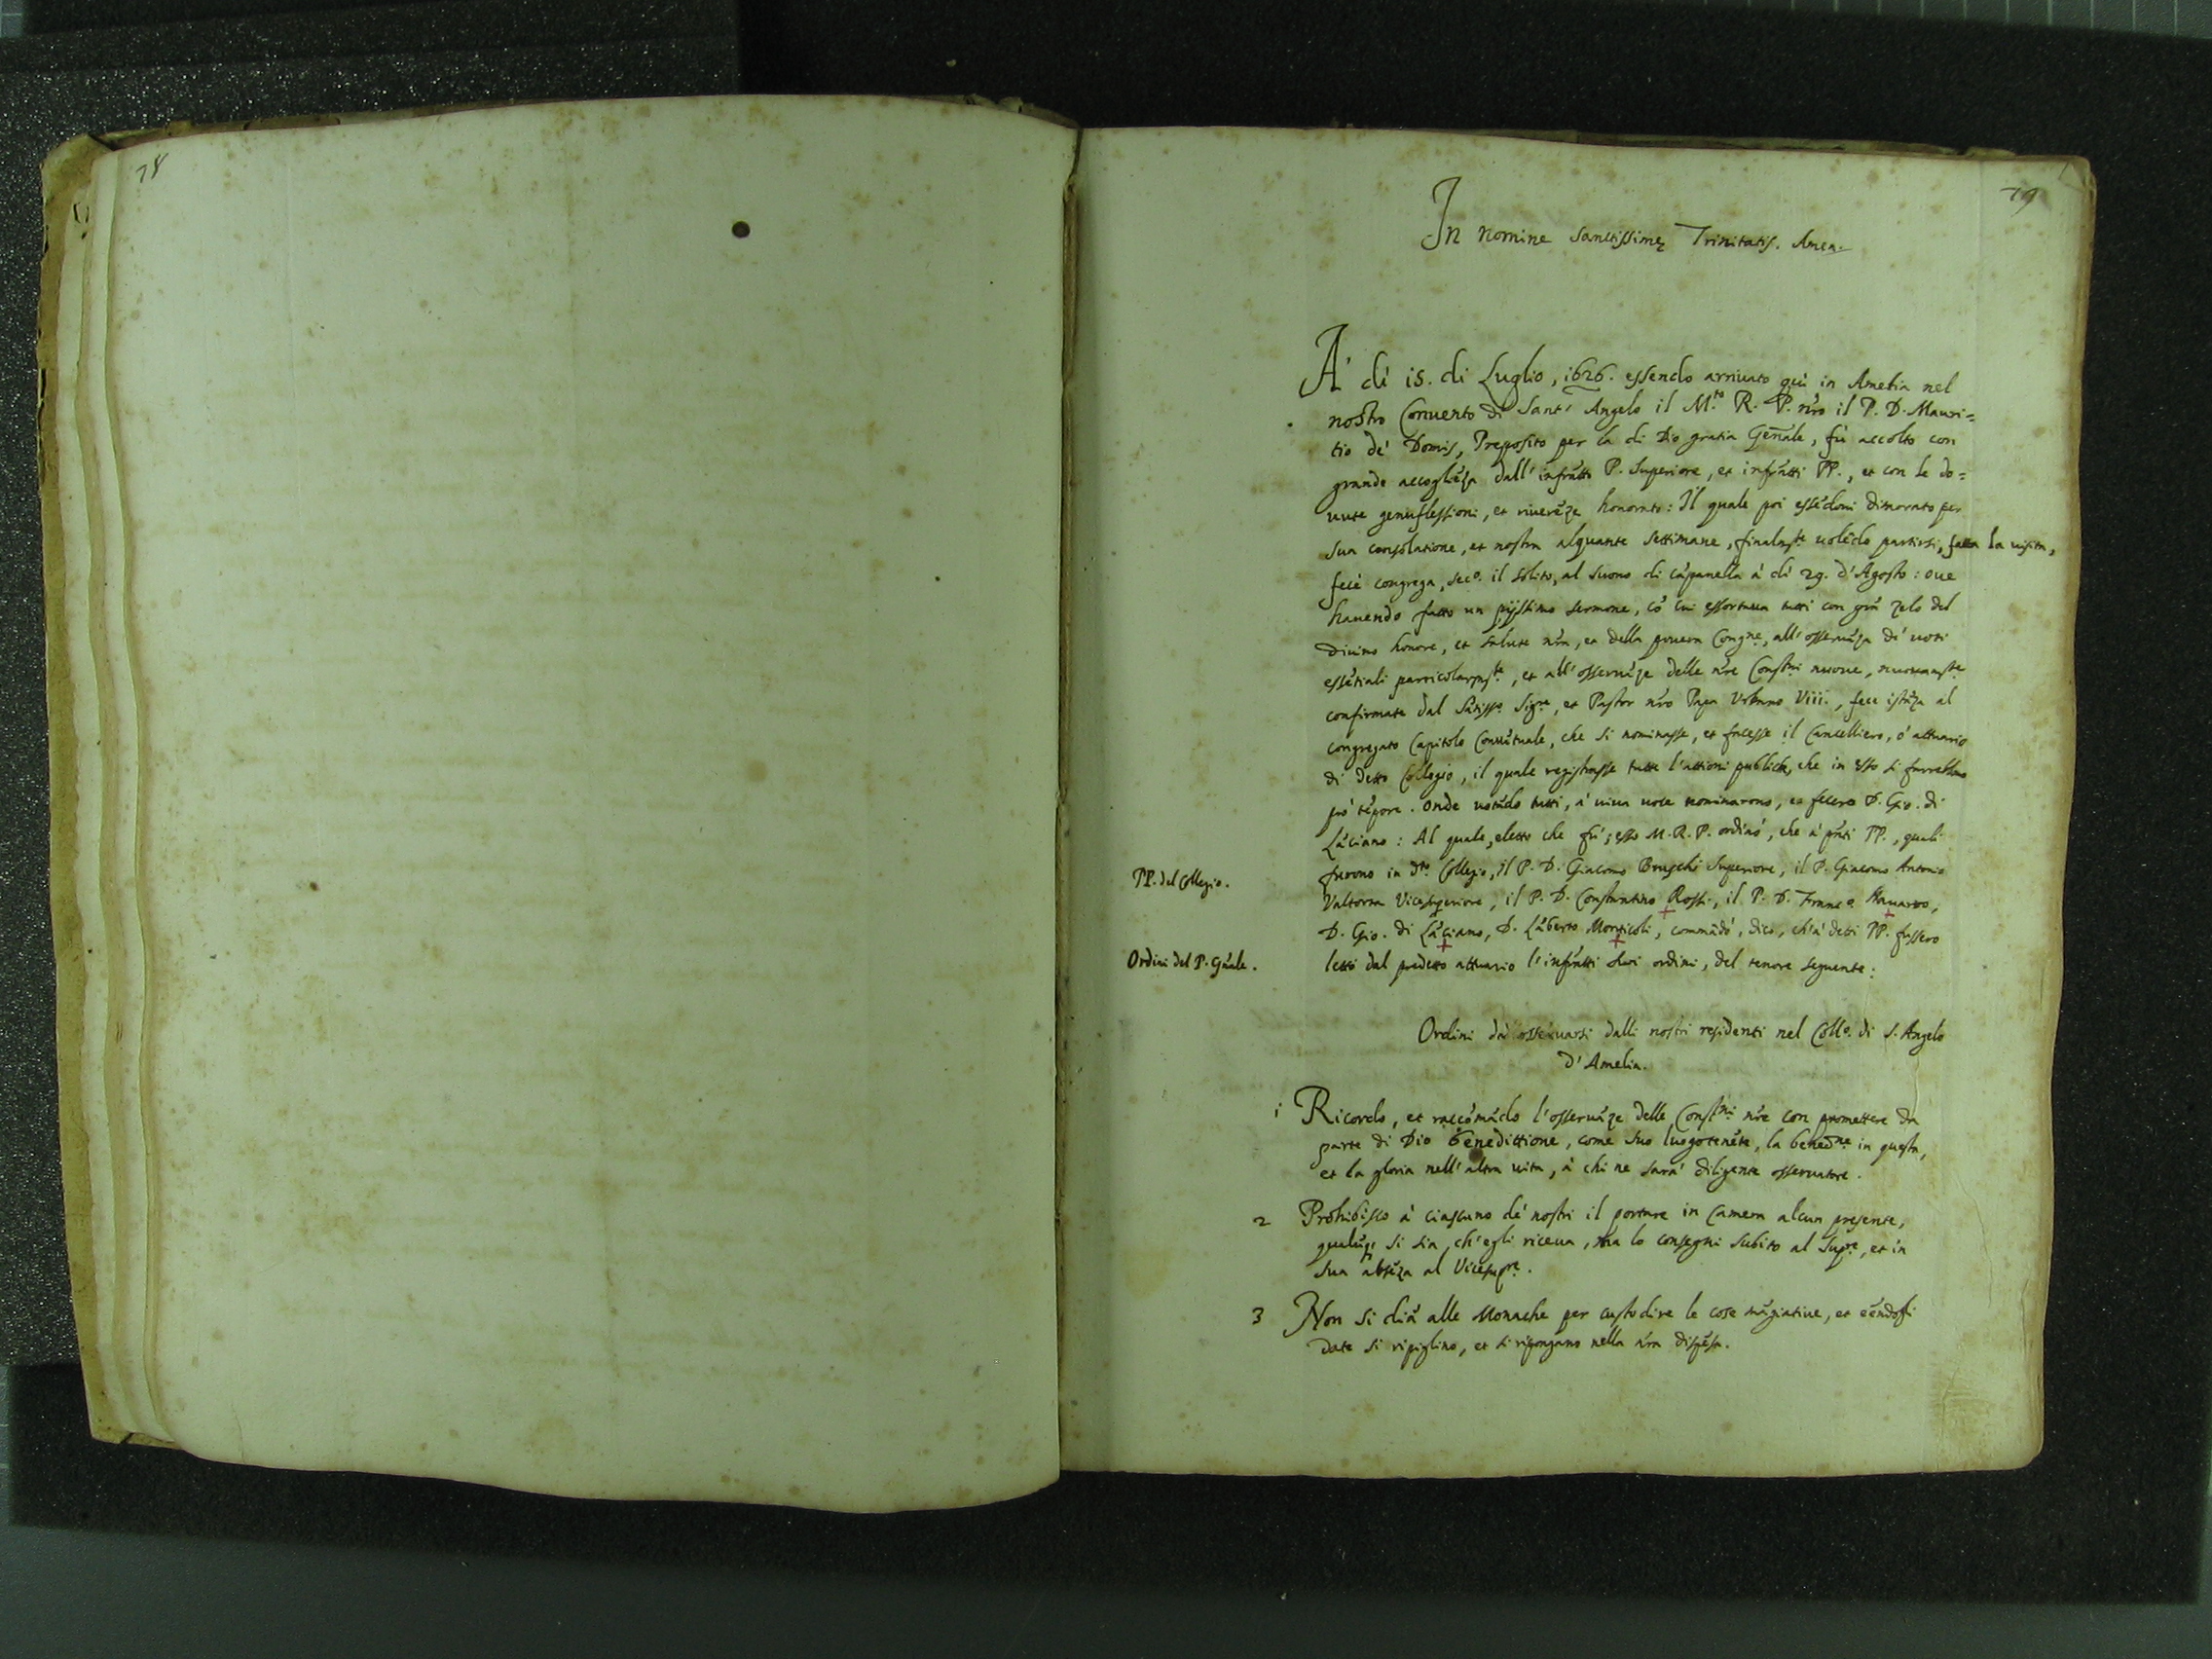 78
79
In nomine Sanctissimę Trinitatis. Amen.
A' di 15. di Luglio, 1626. essendo arriuato quì in Amelia nel
nostro Conuento di Sant' Angelo il M.to R. P. nr̃o il P. D. Mauri=
tio de' Domis, Preposito per la di Dio gratia Gen̄ale, fù accolto con
grande accogliẽza dall' infrãtto P. Superiore, et infrãtti PP., et con le do=
uute genuflessioni, et riuerẽze honorato: Il quale poi essẽdoui dimorato per
sua consolatione, et nostra alquante settimane, finalm̃te uolẽdo partirsi, fatta la uisita,
fece congrega, sec.o il solito, al suono di cãpanella à di 29. d'Agosto: oue
hauendo fatto un pijssimo sermone, cõ cui essortaua tutti con grã zelo del
Diuino honore, et salute nr̃a, et della pouera Cong.ne, all' osseruãza de' uoti
essẽtiali particolarm̃te, et all' osseruãze delle nr̃e Const.ni nuoue, nuouam̃te
confirmate dal Sãtiss.o Sig.re, et Pastor nr̃o Papa Urbano Viii., fece istãza al
congregato Capitolo Conuẽtuale, che si nominasse, et facesse il Cancelliero, ò attuario
di detto Collegio, il quale registrasse tutte l'attioni publiche, che in esso si farrebbono
prò tẽpore. Onde uotãdo tutti, à uiua uoce nominarono, et fecero D. Gio. di
Lãciano: Al quale, eletto che fù, esso M. R. P. ordinò, che à pñti PP., quali
furono in d.to Collegio, il P. D. Giacomo Bruschi Superiore, il P. Giacomo Antonio
Valtorra Vicesuperiore, il P. D. Constantino Rossi, il P. D. Franc.o Nauarro,
D. Gio. di Lãciano, D. Lãberto Monticoli, commãdò, dico, ch'à detti PP. fussero
letti dal predetto attuario l'infrãtti suoi ordini, del tenore seguente:
PP. del Collegio.
Ordini del P. Gñale.
Ordini da osseruarsi dalli nostri residenti nel Coll.o di S. Angelo
D'Amelia.
1 Ricordo, et raccõmãdo l'osseruãze delle Const.ni nr̃e con promettere da
parte di Dio benedittione, come suo luogotenẽte, la bened.ne in questa,
et la gloria nell' altra uita, à chi ne sarà diligente osseruatore.
2 Prohibisco à ciascuno de' nostri il portare in Camera alcun presente,
qualũq; si sia, ch'egli riceua, ma lo consegni subito al Sup.re, et in
sua absẽza al Vicesup.re.
3 Non si dia alle Monache per custodire le cose mãgiatiue, et eẽndosi
date si ripiglino, et si ripongano nella nr̃a dispẽsa.